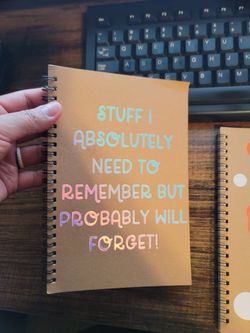 STUFF I
ABSOLUTELY
NEED TO
REMEMBER BUT
PROBABLY WILL
FORGET!